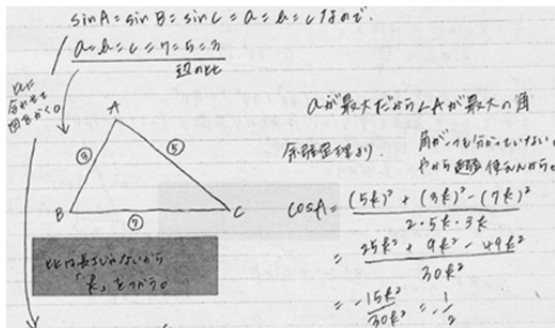 sinA = sinB = sinC = a = b = c なので、
a = b = c = 7 = 5 = 3
辺の比
比に
合わせて
図をかく。
A
③
⑤
B
⑦
C
比は長さじゃないから
「k」をつかう。
aが最大だから∠Aが最大の角
余弦定理より、
角が一つも分かっていない。
cosA = \frac{(5k)²+(3k)²-(7k)²}{2・5k・3k}
= \frac{25k²+9k²-49k²}{30k²}
= \frac{-15k²}{30k²} = -\frac{1}{2}